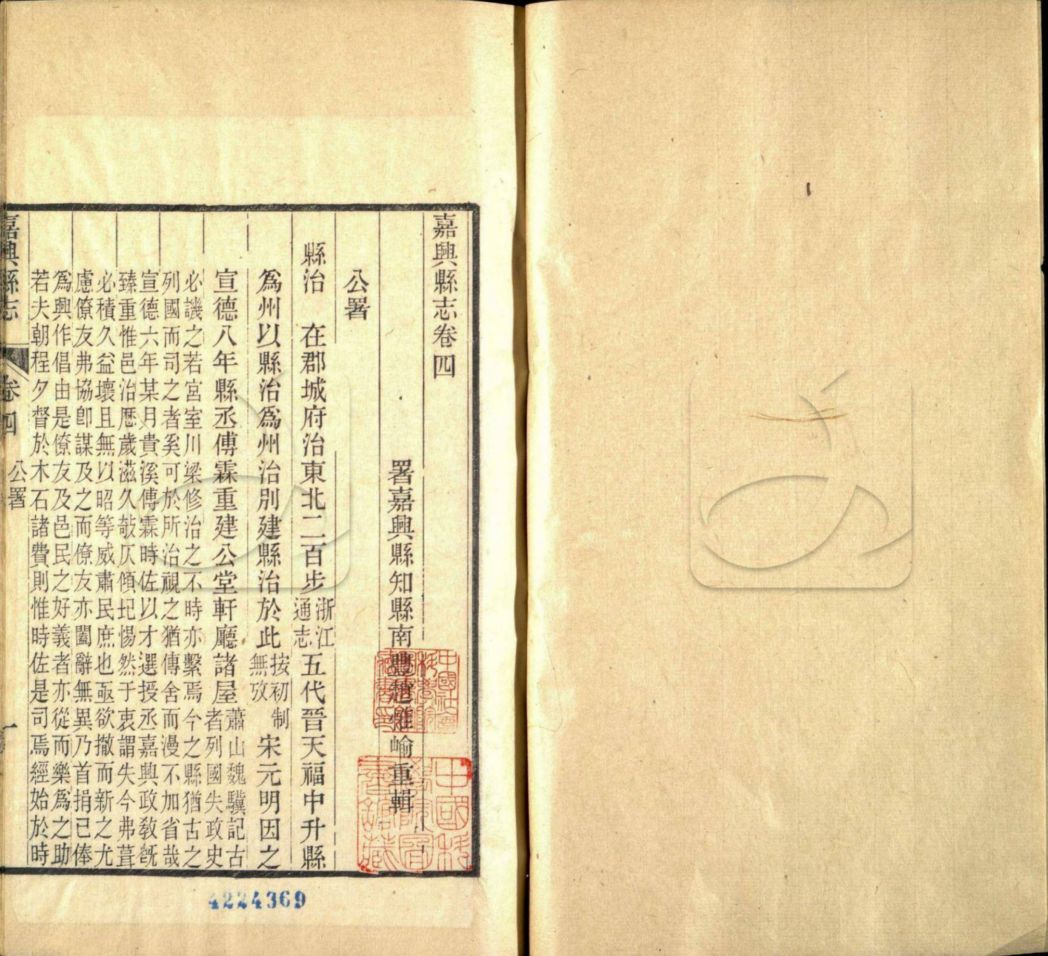 嘉興縣志卷四
署嘉興縣知縣南豐趙惟崳重輯
公署
縣治 在郡城府治東北二百步
浙江
通志
五代晉天福中升縣
為州以縣治為州治別建縣治於此
按初制
無攷
宋元明因之
宣德八年縣丞傅霖重建公堂軒廳諸屋
蕭山魏驥記古
者列國失政史
必譏之若宮室川梁修治之不時亦繫焉今之縣猶古之
列國而司之者奚可於所治視之猶傳舍而漫不加省哉
宣德六年某月貴溪傅霖時佐以才選授丞嘉興政敎旣
臻重惟邑治歷歲滋久欹仄傾圮惕然于衷謂失今弗葺
必積久益壞且無以昭等威肅民庶也亟欲撤而新之尤
慮僚友弗協卽謀及之而僚友亦闔辭無異乃首捐已俸
為興作倡由是僚友及邑民之好義者亦從而樂為之助
若夫朝程夕督於木石諸費則惟時佐是司焉經始於時
嘉興縣志
卷四
公署
一
4224369